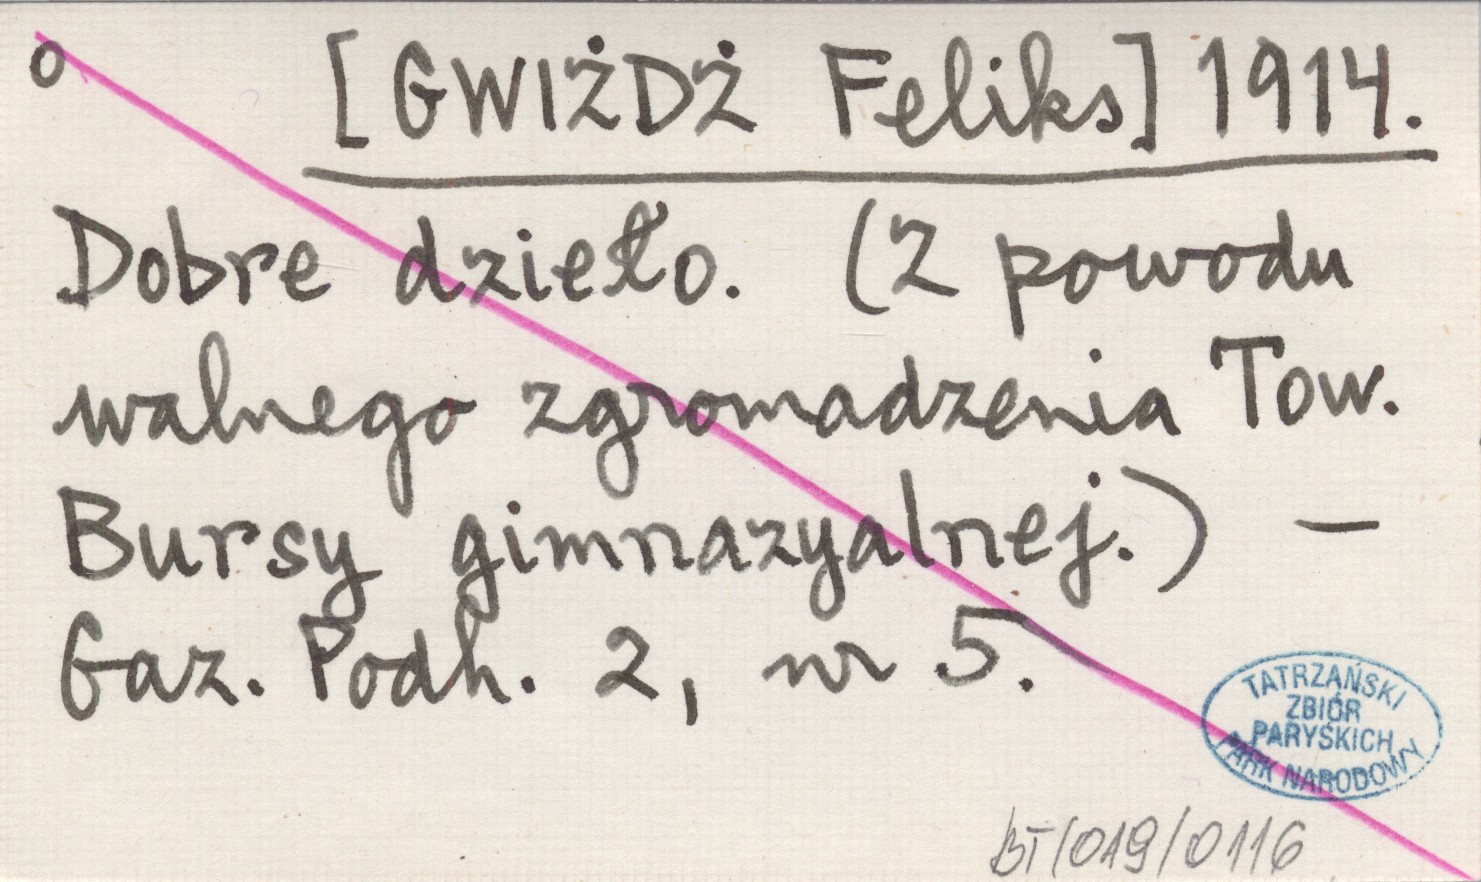 o [GWIŻDŻ Feliks] 1914.
Dobre dzieło. (Z powodu
walnego zgromadzenia Tow.
Bursy gimnazyalnej.) —
Gaz. Podh. 2, nr 5.
TATRZAŃSKI
ZBIÓR
PARYSKICH
PARK NARODOWY
BT/019/0116